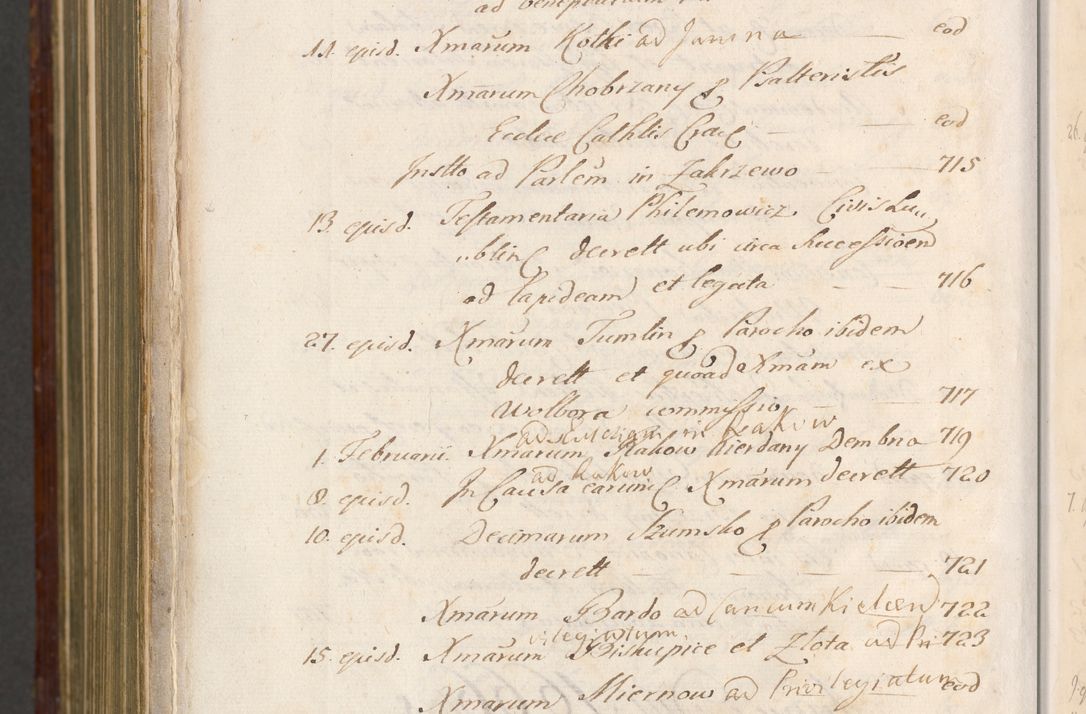 ad beneficium
11. ejusd. Xmarum Kotki ad Janina — eod
Xmarum Chobrzany p Psalteristis
Eccliæ Cathlis Crac — eod
Instto ad Parlem in Zakrzewo — 715
13 ejusd. Testamentaria Philemowicz Civis Lu
blin decrett ubi circa Successionem
ad lapideam et legata — 716
27. ejusd. Xmarum Tumlin p Parocho ibidem
decrett et quoad Xmam ex
Wolbora commissio — 717
ad in Raków
1. Februarii Xmarum Rakow Kierdany Dembno 719
ad Rakow
8. ejusd. In Causa earum Xmarum decrett 720
10. ejusd. Decimarum Szumsko p Parocho ibidem
decrett — 721
Xmarum Bardo ad Cancum Kielcen 722
15. ejusd. Xmarum Biskupice et Złota ad Pri 723
vilegiatum
Xmarum Miernow ad Privilegiatum eod